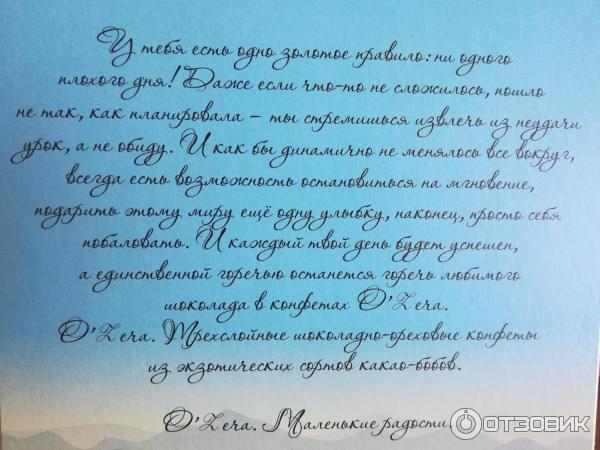 У тебя есть одно золотое правило: ни одного
плохого дня! Даже если что-то не сложилось, пошло
не так, как планировала – ты стремишься извлечь из неудачи
урок, а не обиду. И как бы динамично не менялось все вокруг,
всегда есть возможность остановиться на мгновение,
подарить этому миру ещё одну улыбку, наконец, просто себя
побаловать. И каждый твой день будет успешен,
а единственной горечью останется горечь любимого
шоколада в конфетах O'Zera.
O'Zera. Трехслойные шоколадно-ореховые конфеты
из экзотических сортов какао-бобов.
O'Zera. Маленькие радости.
ОТЗОВИК